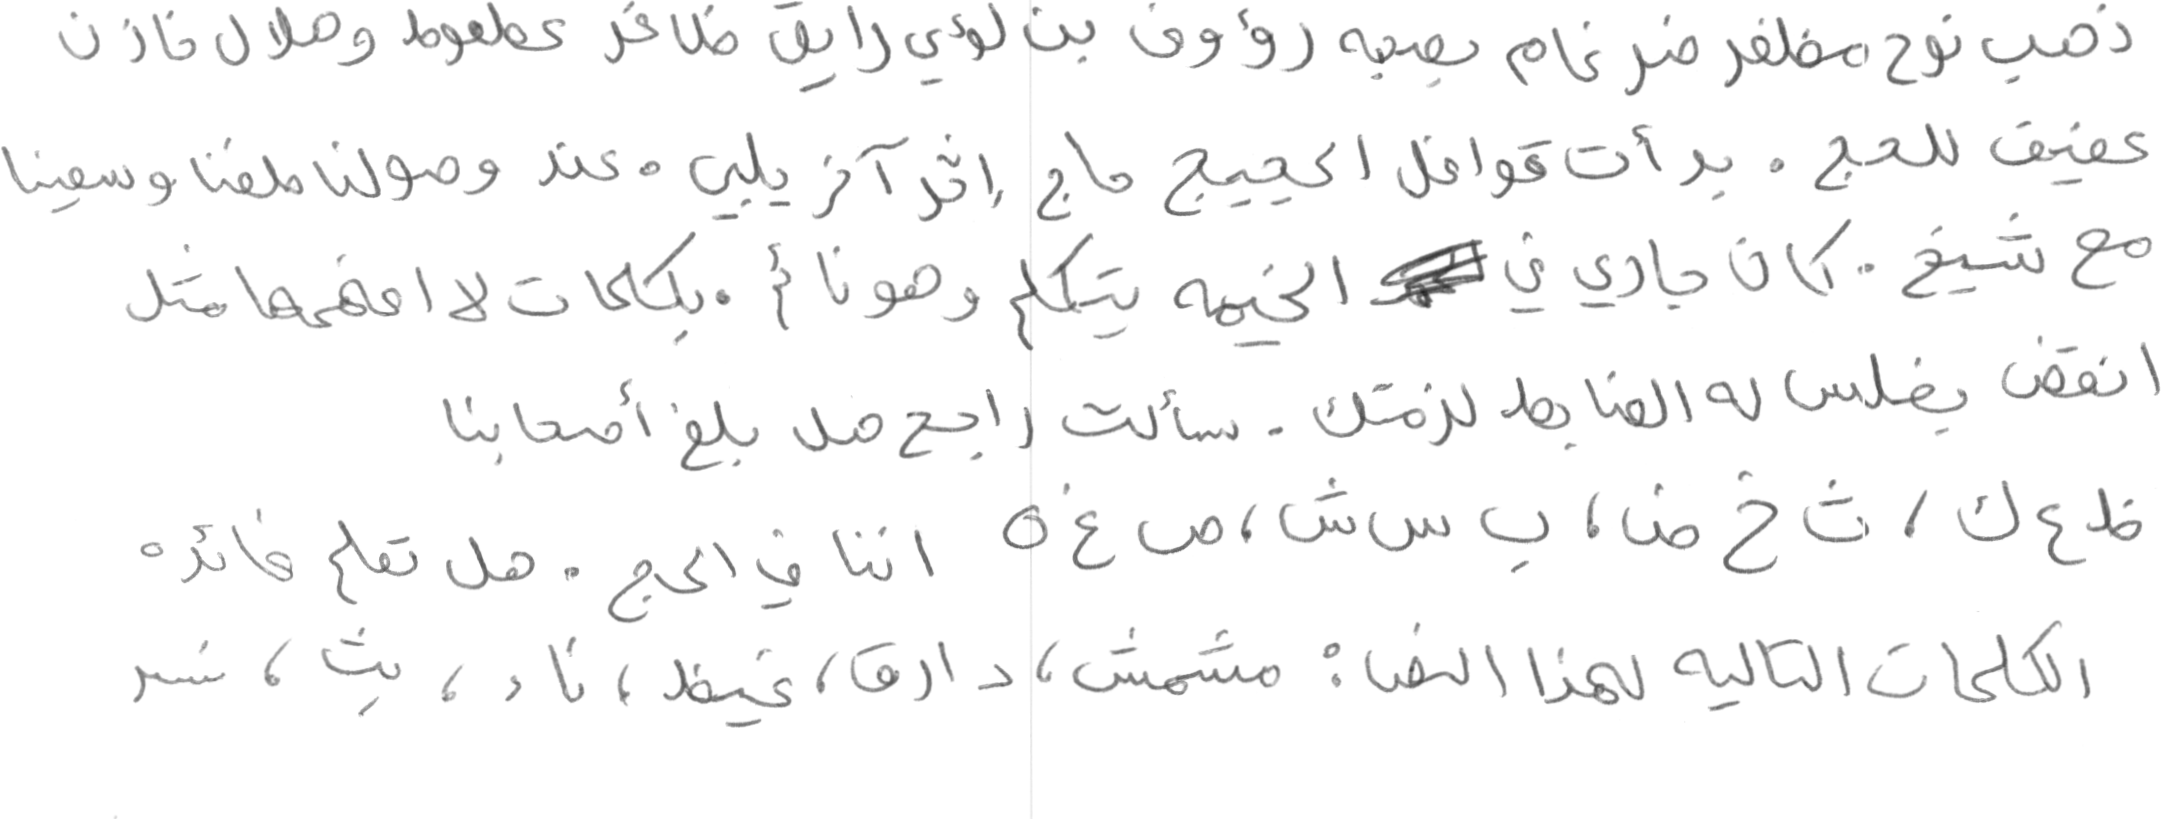 ذهب نوح مظفر ضرغام بصحبه رؤوف بن لؤي رايق ظافر عطعوط وهلال خازن
عفيف للحج . بدأت قوافل الحجيج حاج إثر آخر يلبي . عند وصولنا طفنا وسعينا
مع شيخ . كان جاري في الخيمه يتكلم وهو نائم . بكلمات لا افهمها مثل
انقض يغلس له الضابط لزمتك . سألت راجح هل بلغ أصحابنا
ظ ع ك ، ث خ ض ، ب س ش ، ص غ ه اننا في الحج . هل تعلم فائده
الكلمات التاليه لهذا النص : مشمش ، دارق ، غيظ ، ناء ، بث ، نسر